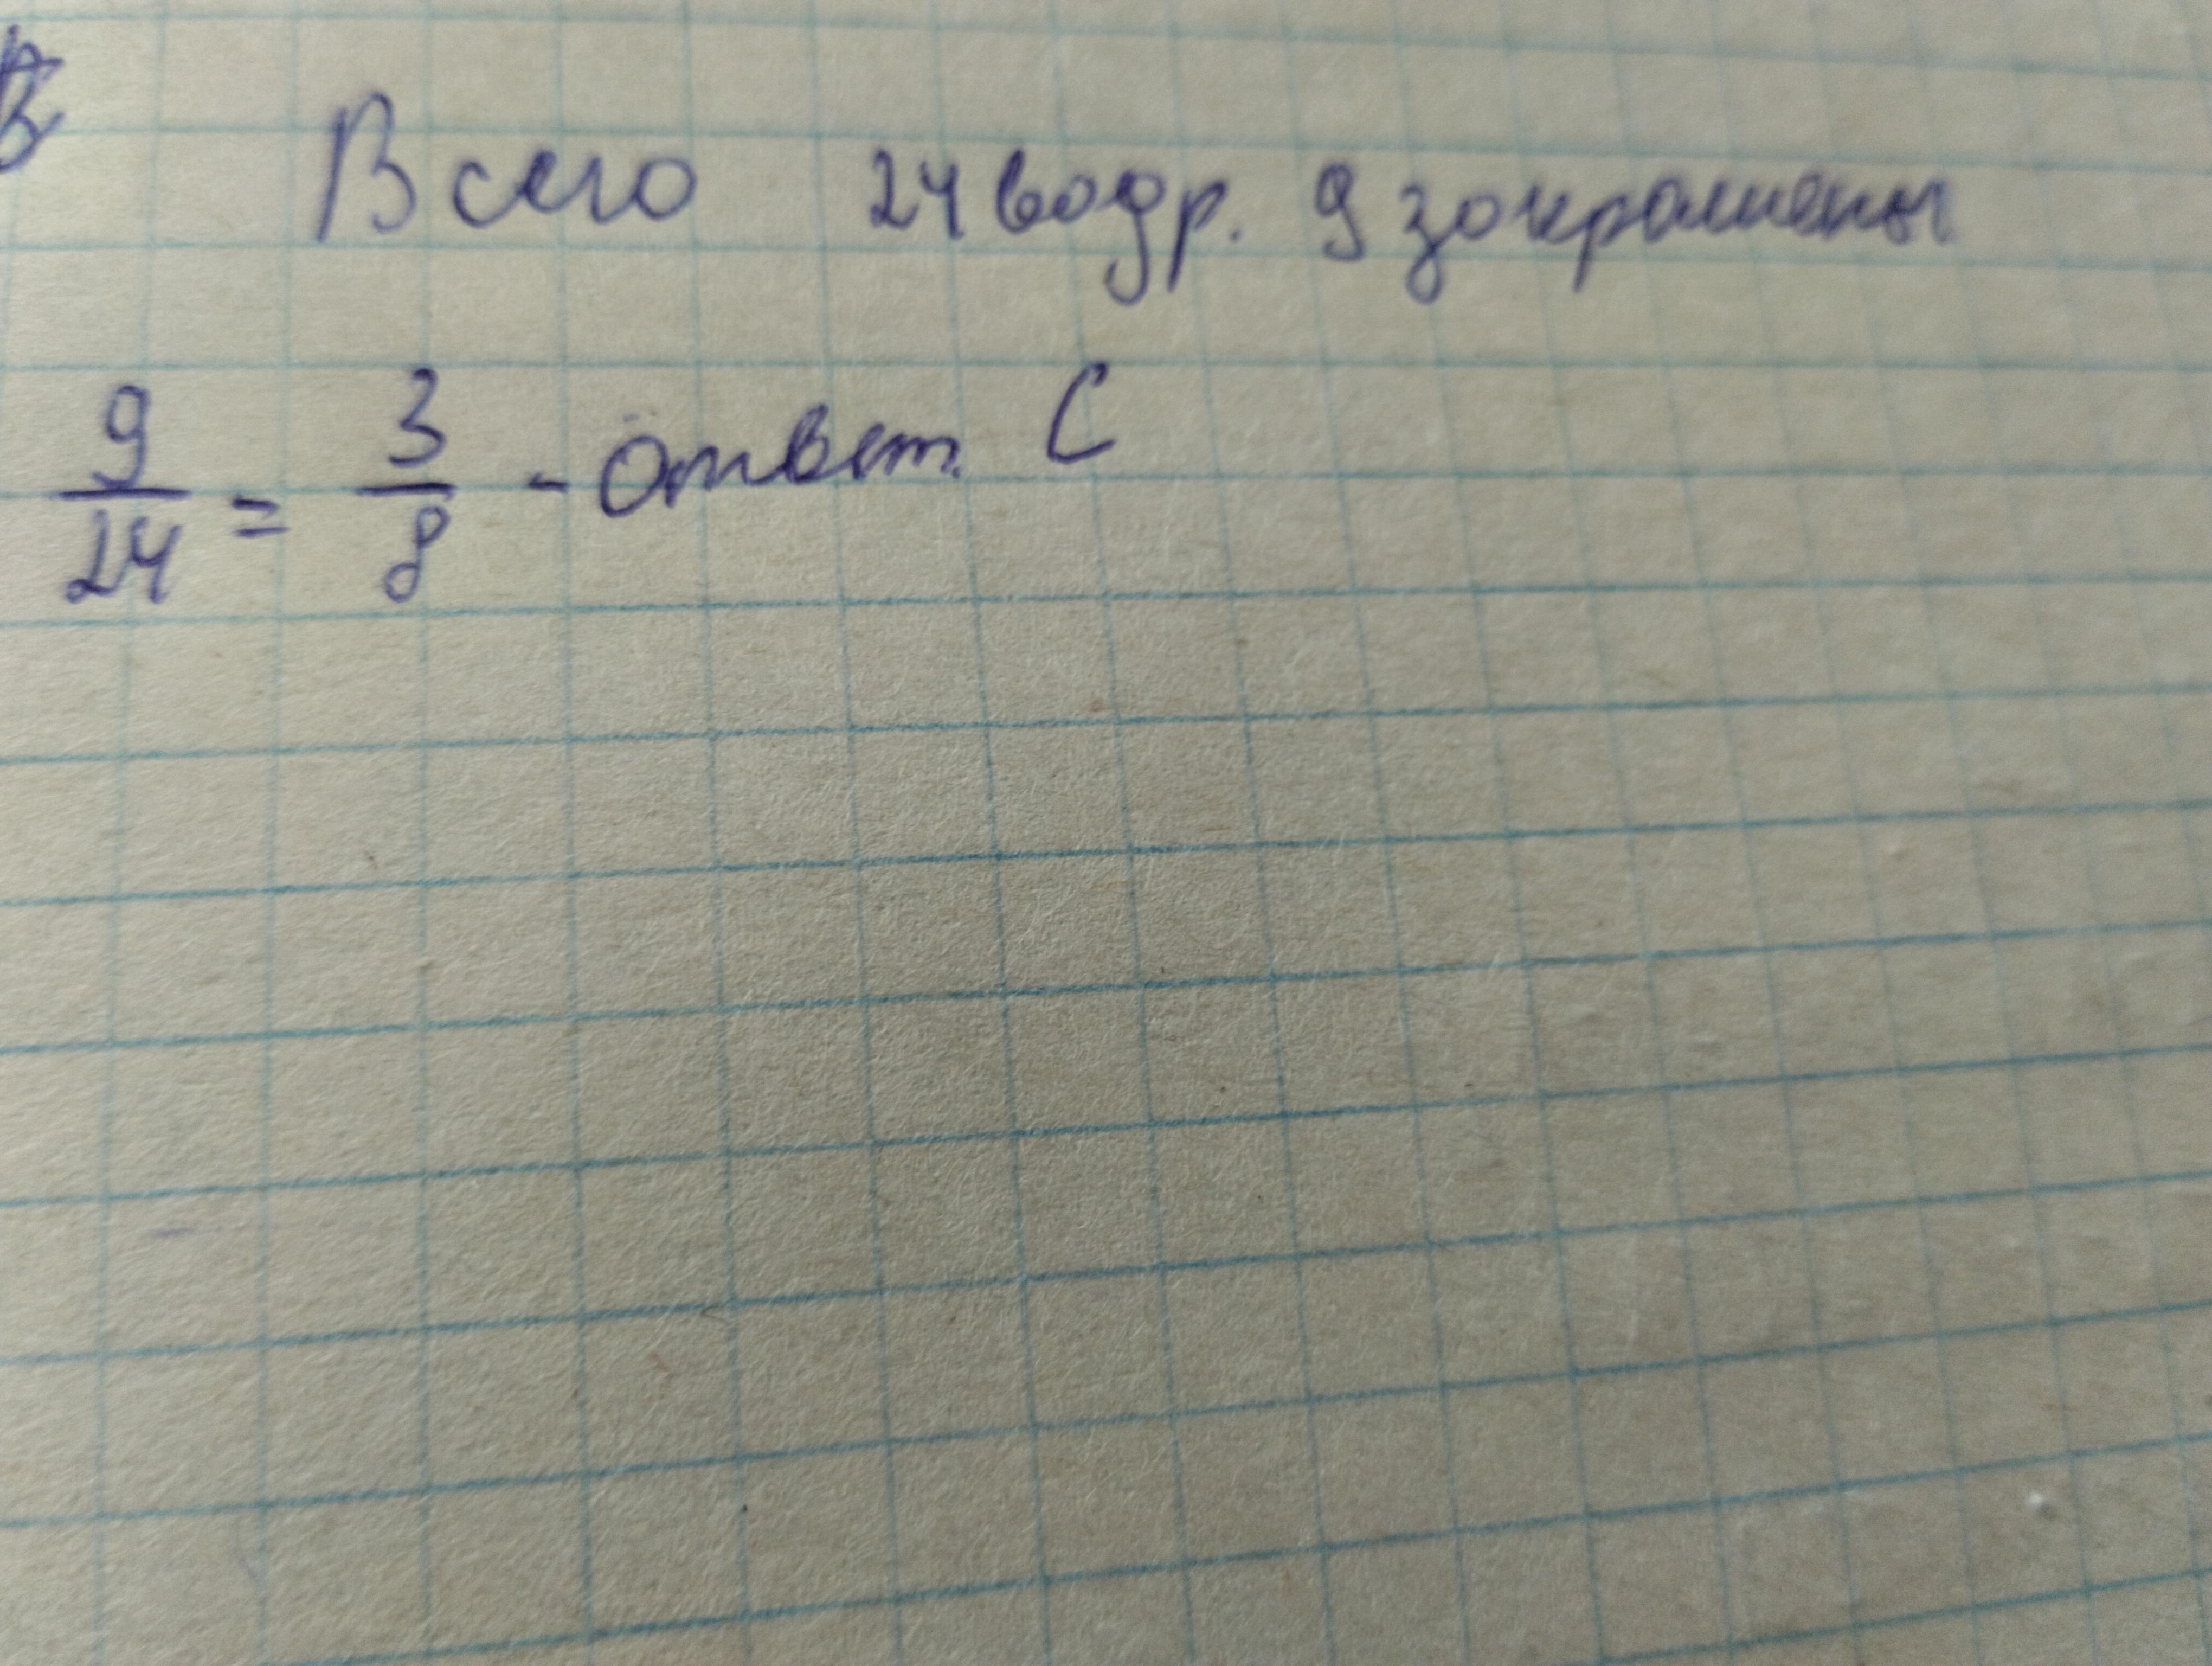 Всего 24 водр. 9 закрашены
9/24 = 3/8 - ответ С